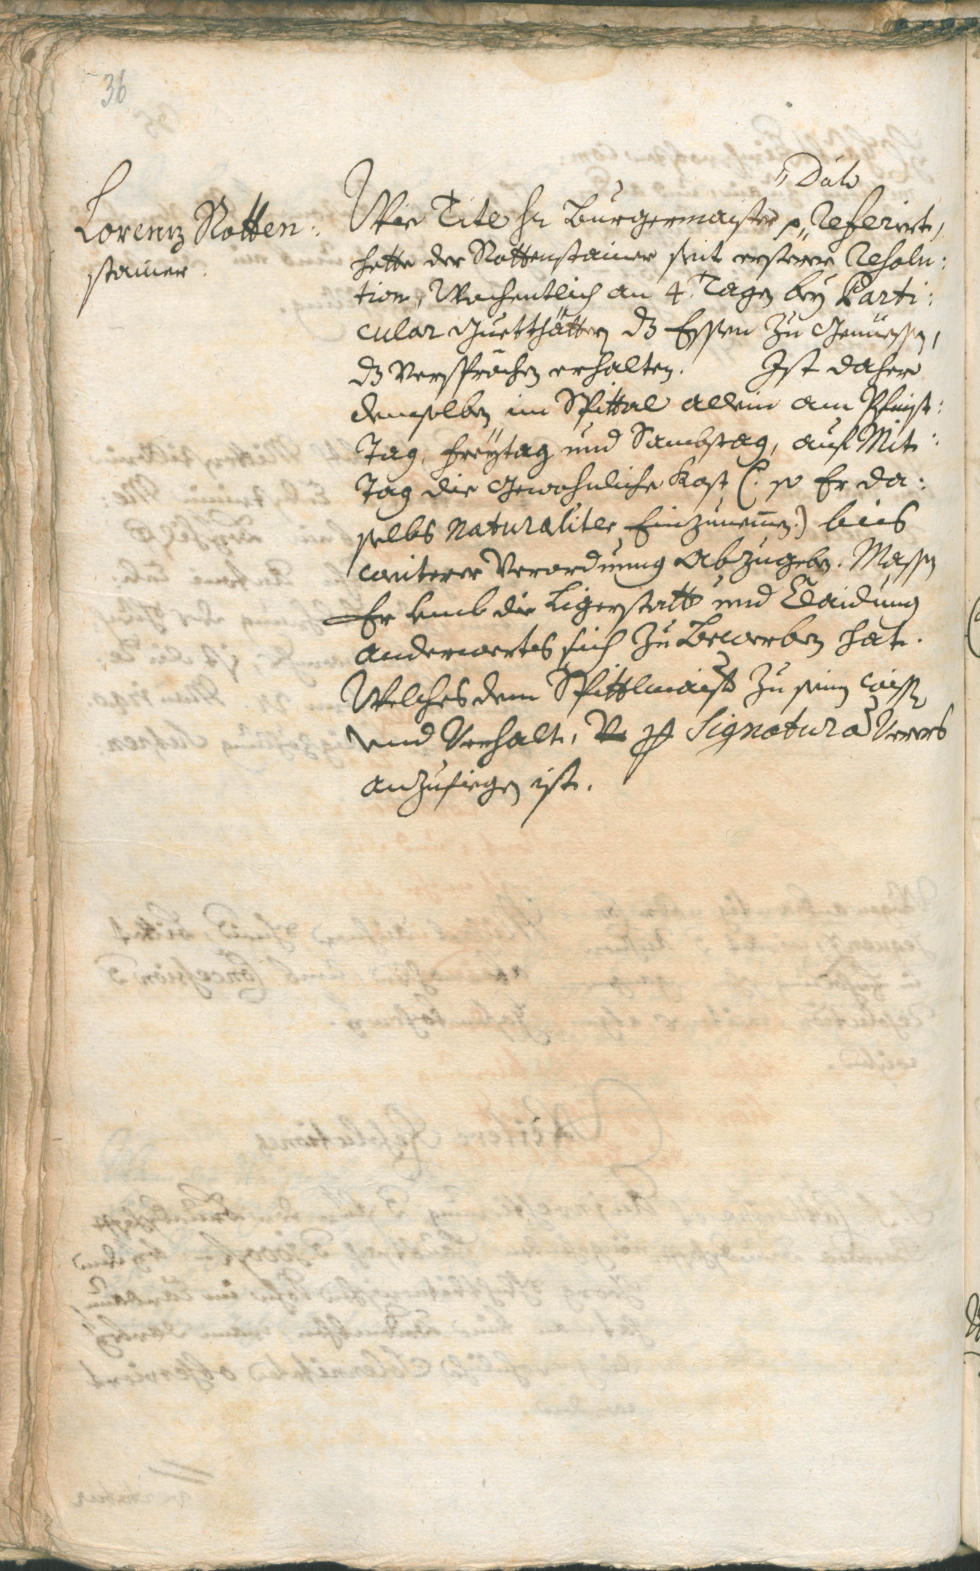 36
Lorenz Rotten:
stainer.
Dato
Wie Tite hr Burgermaister p. Referirt,
hette der Rottenstainer seit ersterer Resolu:
tion, Wochentlich an 4. Tagen bey Parti:
cular Guetthätter dz Essen zu Genüessen,
dz Versprächen erhalten. Ist daher
demselben im Spittal allein am Pfingst:
Tag, Freytag und Sambstag, auf Mit:
Tag die Gewohnliche Kost (: so Er da:
selbs Naturaliter Einzunemen :) biss
weiterer Verordnung Abzugeben. Massen
Er umb die Ligerstatt und Claidung
anderwerts sich zu Bewerben hat.
Welches dem Spittlmaister zu seim wissen
und Verhalt, Signatura
anzufiegen ist.